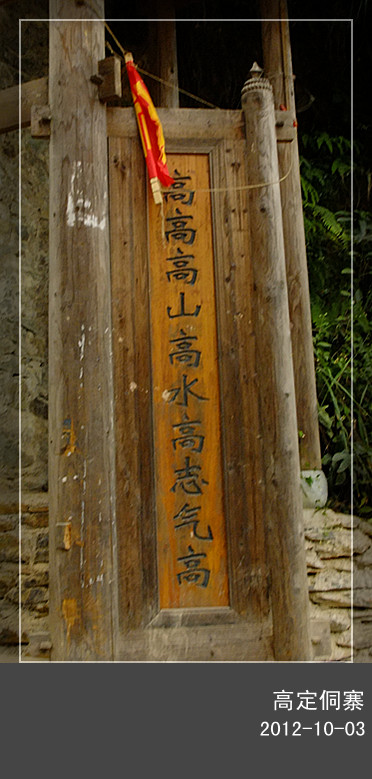 高高高山高水高志气高
高定侗寨
2012-10-03